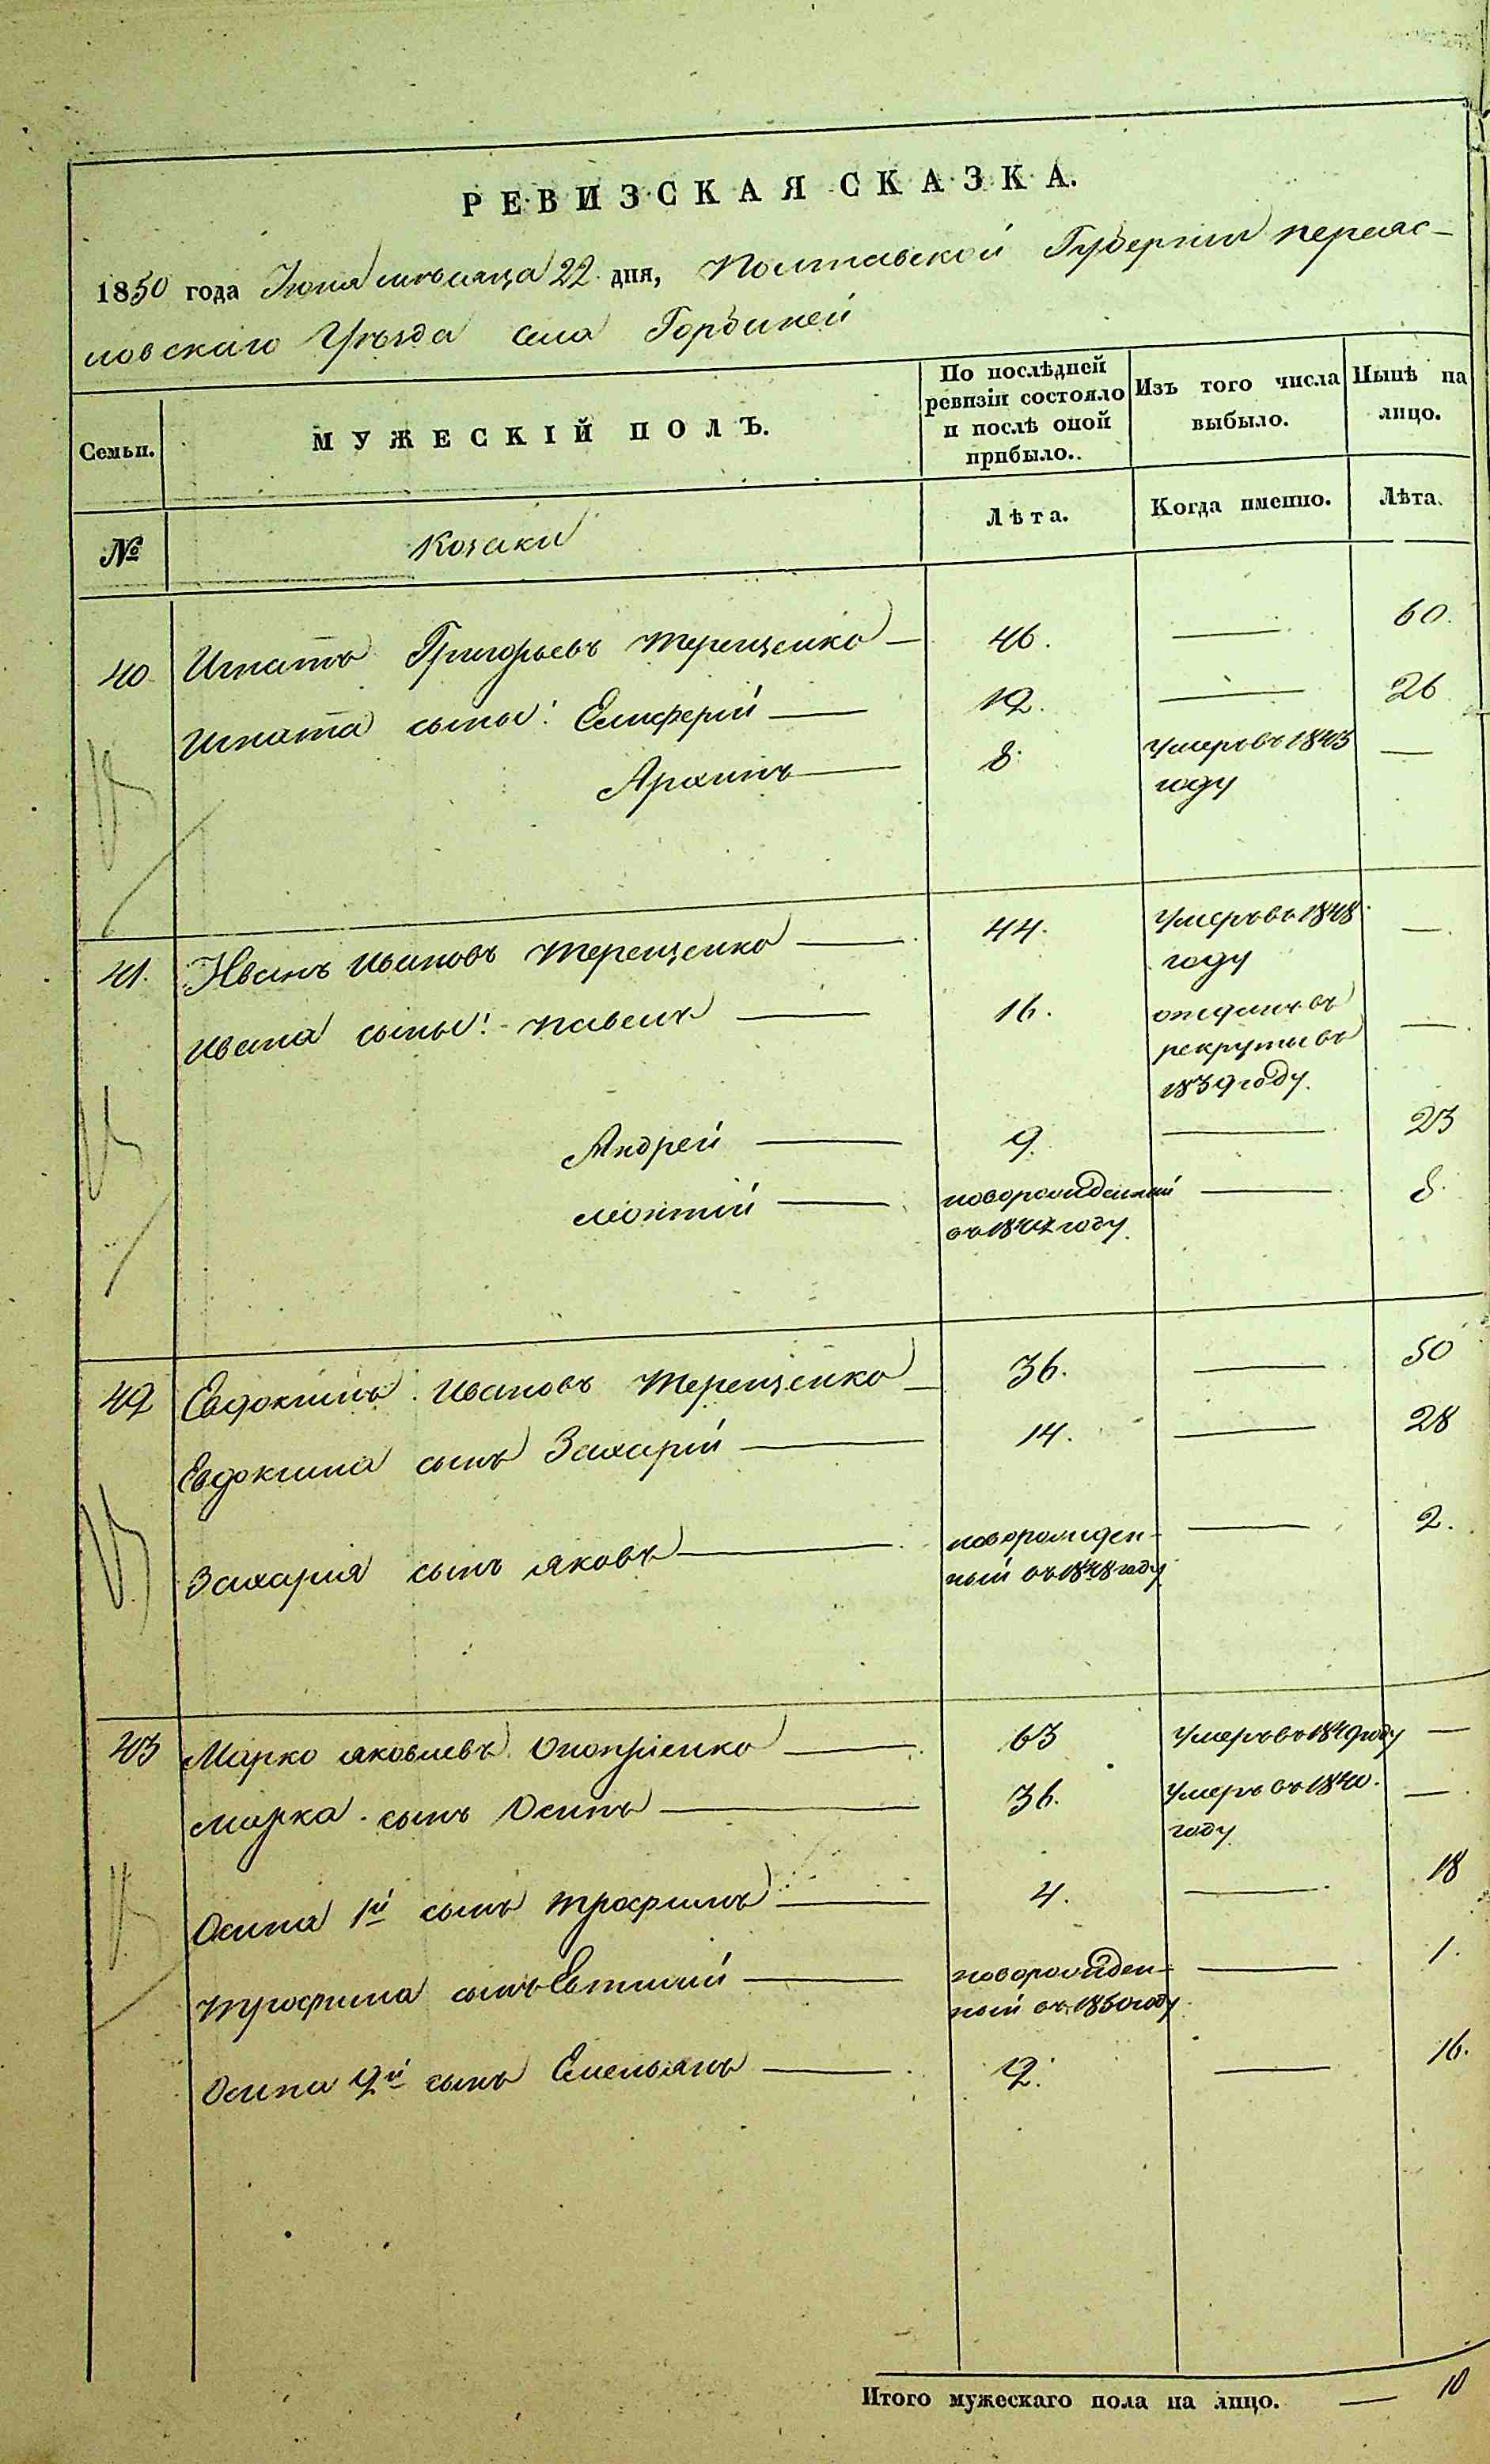 РЕВИЗСКАЯ СКАЗКА.
1850 года Іюня мѣсяца 22 дня, Полтавской Губерніи переяс-
ловскаго Уѣзда села Горбаней
Семьи.
МУЖЕСКІЙ ПОЛЪ.
По послѣдней ревизіи состояло и послѣ оной прибыло.
Изъ того числа выбыло.
Нынѣ на лицо.
№
Козаки
Лѣта.
Когда именно.
Лѣта.
40 Игнатъ Григорьевъ Терещенко — 46. — 60.
Игната сыны: Елиферій — 12. — 26
Архипъ — 8. Умеръ въ 1843 —
году
41. Иванъ Ивановъ Терещенко — 44. Умеръ въ 1848 —
году
Ивана сыны: Павелъ — 16. отданъ въ
рекруты въ —
1839 году.
Андрей — 9. — 23
Леонтій — новорожденный — 8.
въ 1842 году.
42 Евдокимъ Ивановъ Терещенко — 36. — 50
Евдокима сынъ Захарій — 14. — 28
Захарія сынъ Яковъ — новорожден- — 2.
ный въ 1848 году
43 Марко Яковлевъ Онопріенко — 63 Умеръ въ 1849 году —
Марка сынъ Осипъ — 36. Умеръ въ 1840. —
году
Осипа 1й сынъ Трофимъ — 4. — 18
Трофима сынъ Евтихій — новорожден- — 1.
ный въ 1850 году
Осипа 2й сынъ Емельянъ — 2. — 16.
Итого мужескаго пола на лицо. — 10